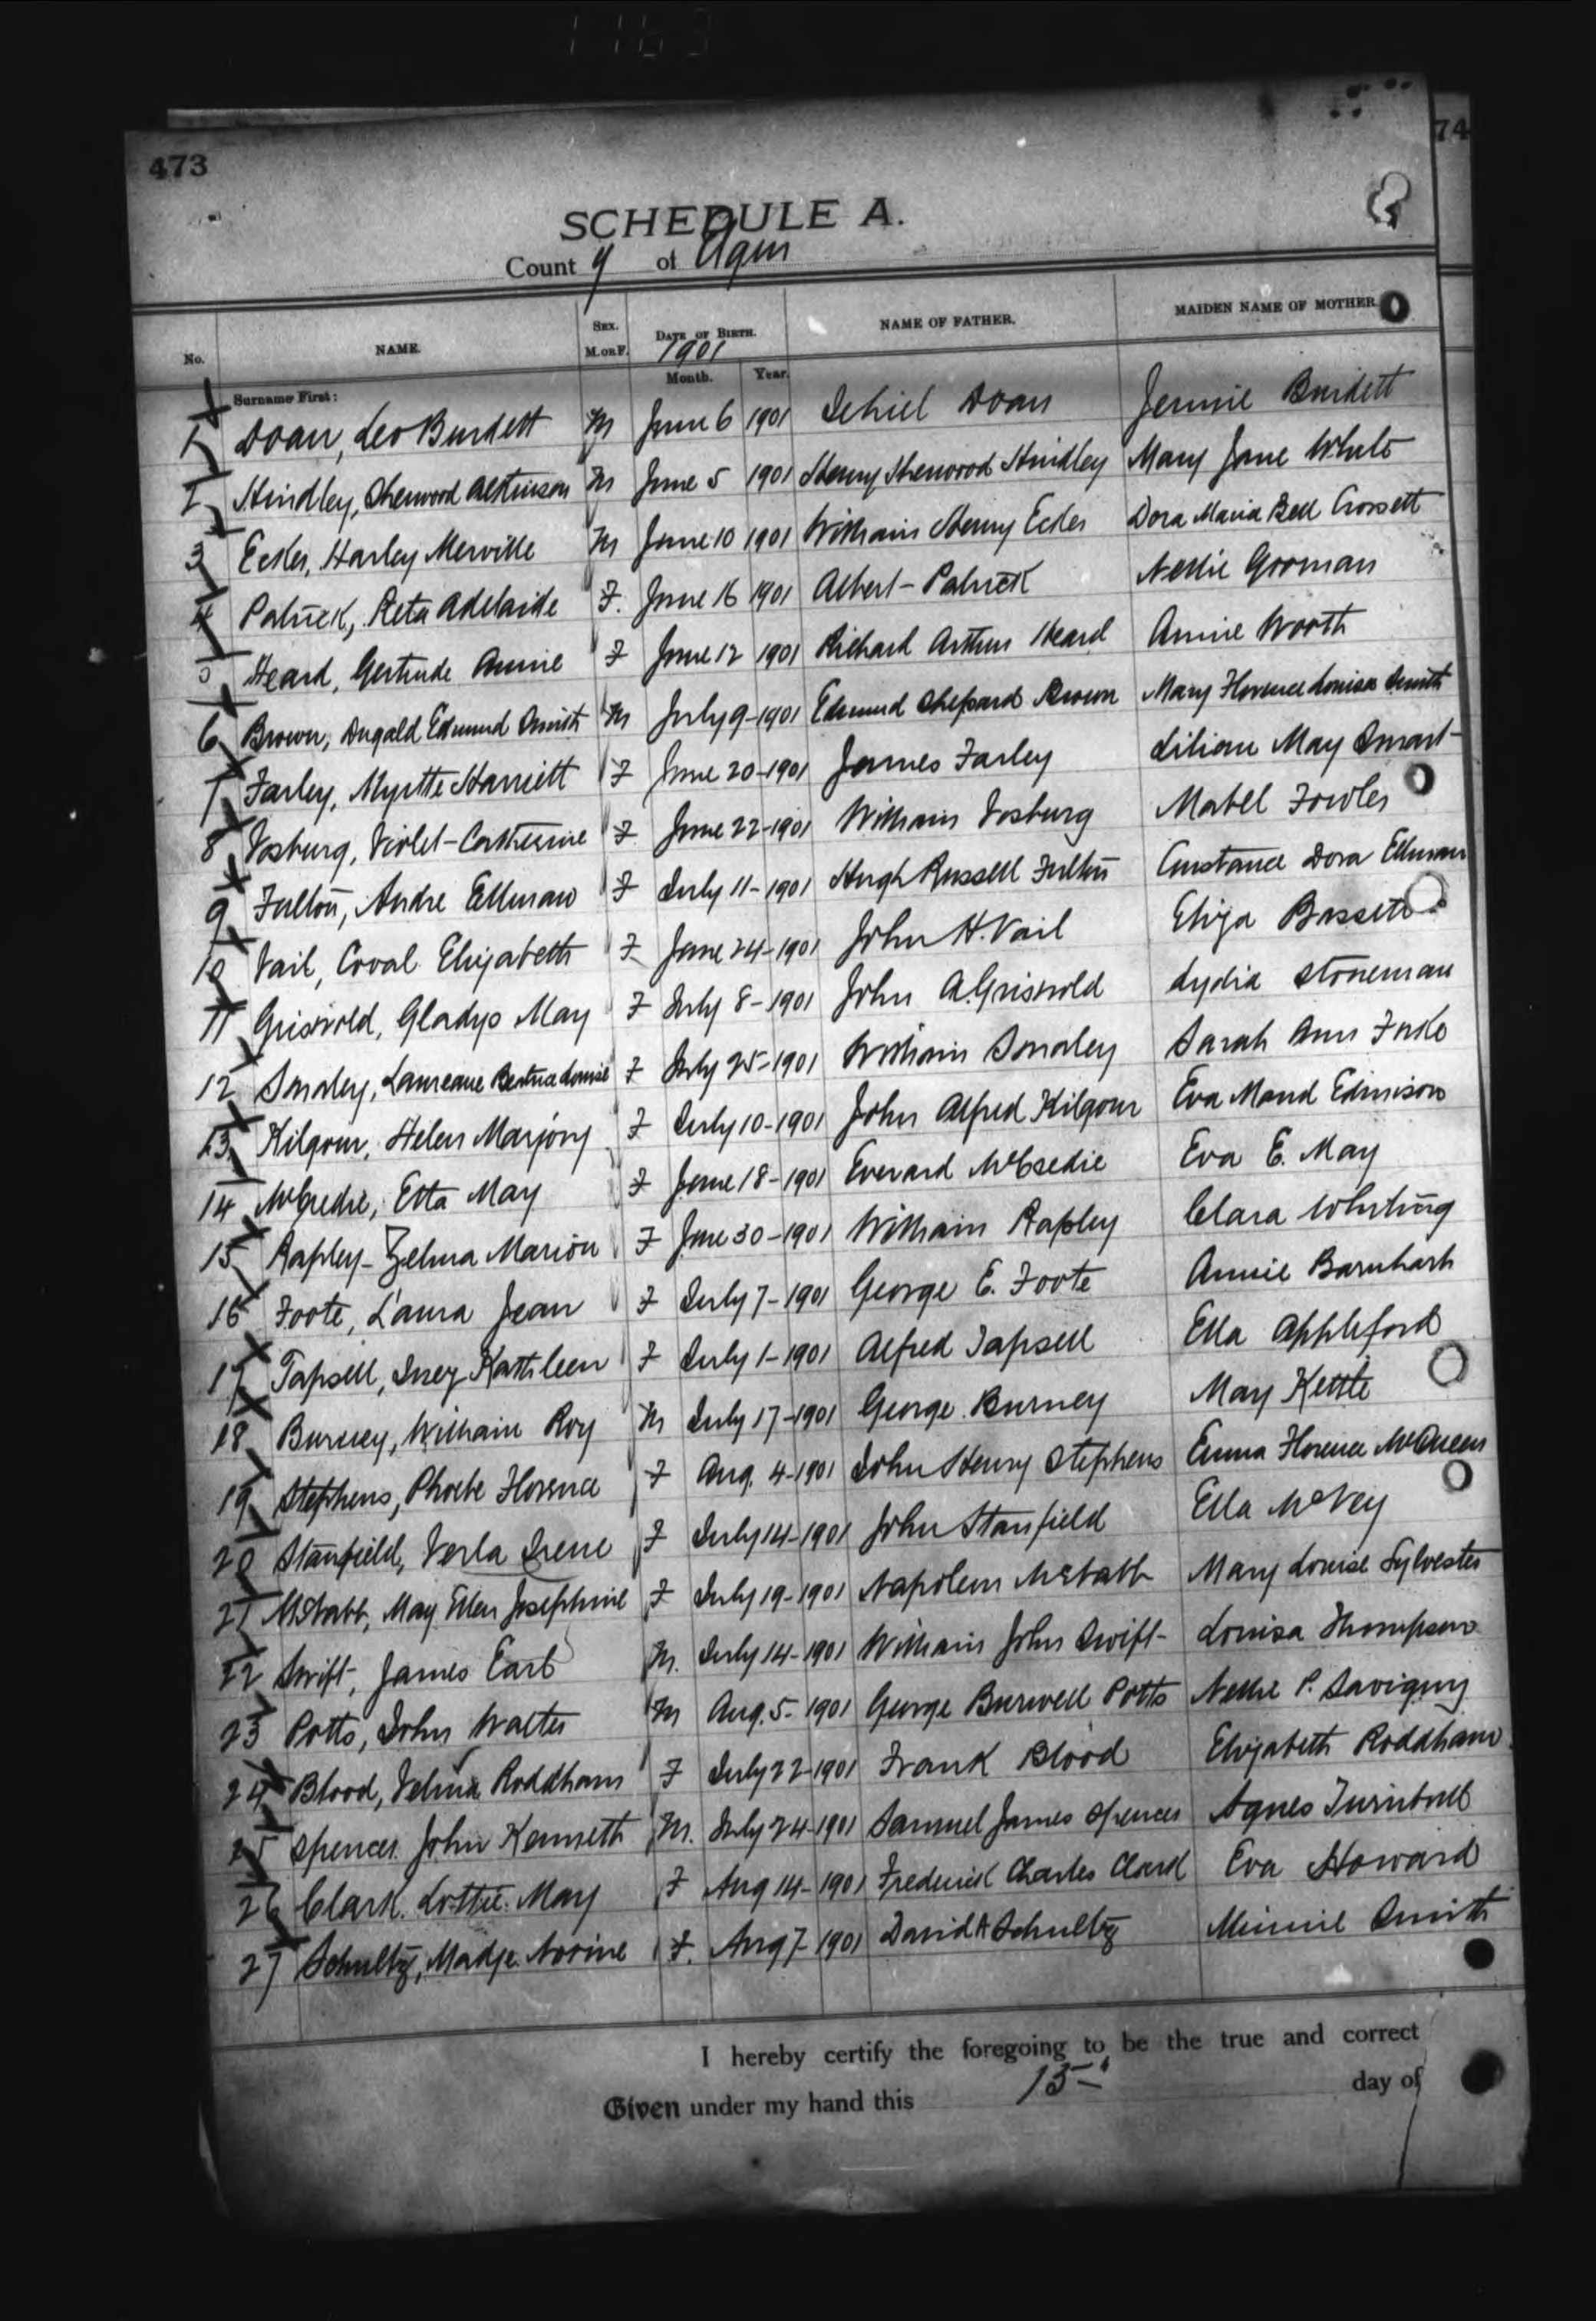 473
74
SCHEDULE A.
County of Elgin
No. NAME. SEX. M. OR F. DATE OF BIRTH. 1901 Month. Year. NAME OF FATHER. MAIDEN NAME OF MOTHER.
Surname First:
1 Doan, Leo Burdett M June 6 1901 Jehiel Doan Jennie Burdett
2 Hindley, Sherwood Atkinson M June 5 1901 Henry Sherwood Hindley Mary Jane White
3 Ecker, Harley Merville M June 10 1901 William Henry Ecker Dora Maria Bell Crossett
4 Patrick, Reta Adelaide F. June 16 1901 Albert Patrick Nellie Gooman
5 Heard, Gertrude Annie F June 12 1901 Richard Arthur Heard Annie Worth
6 Brown, Dugald Edmund Smith M July 9-1901 Edmund Shepard Brown Mary Florence Louisa Smith
7 Farley, Myrtle Harriett F June 20-1901 James Farley Lilian May Smart
8 Vosburg, Violet Catherine F June 22-1901 William Vosburg Mabel Fowler
9 Fulton, Andre Ellman F July 11-1901 Hugh Russell Fulton Constance Dora Ellman
10 Vail, Coval Elizabeth F June 24-1901 John H. Vail Eliza Bassett
11 Griswold, Gladys May F July 8-1901 John A. Griswold Lydia Stoneman
12 Smaley, Laureane Beatrice Louise F July 25-1901 William Smaley Sarah Ann
13 Kilgour, Helen Marjory F July 10-1901 John Alfred Kilgour Eva Maud Edmison
14 McCredie, Etta May F June 18-1901 Everard McCredie Eva E. May
15 Rapley-Zelma Marion F June 30-1901 William Rapley Clara Whiting
16 Foote, Laura Jean F July 7-1901 George E. Foote Annie Barnhart
17 Tapsell, Inez Kathleen F July 1-1901 Alfred Tapsell Ella Appleford
18 Burney, William Roy M July 17-1901 George Burney May Kettle
19 Stephens, Phoebe Florence F Aug. 4-1901 John Henry Stephens Emma Florence McQueen
20 Stanfield, Verla Irene F July 14-1901 John Stanfield Ella McVey
21 McNabb, May Ellen Josephine F July 19-1901 Napoleon McNabb Mary Louise Sylvester
22 Swift, James Earl M. July 14-1901 William John Swift Louisa Thompson
23 Potts, John Walter M Aug. 5-1901 George Burwell Potts Nellie P. Savigny
24 Blood, Velma Roddham F July 22-1901 Frank Blood Elizabeth Roddham
25 Spencer John Kenneth M. July 24-1901 Samuel James Spencer Agnes Turnbull
26 Clark. Lottie May F Aug 14-1901 Frederick Charles Clark Eva Howard
27 Schultz, Madge Norine F. Aug 7-1901 David A Schultz Minnie Smith
I hereby certify the foregoing to be the true and correct
Given under my hand this 15 day of